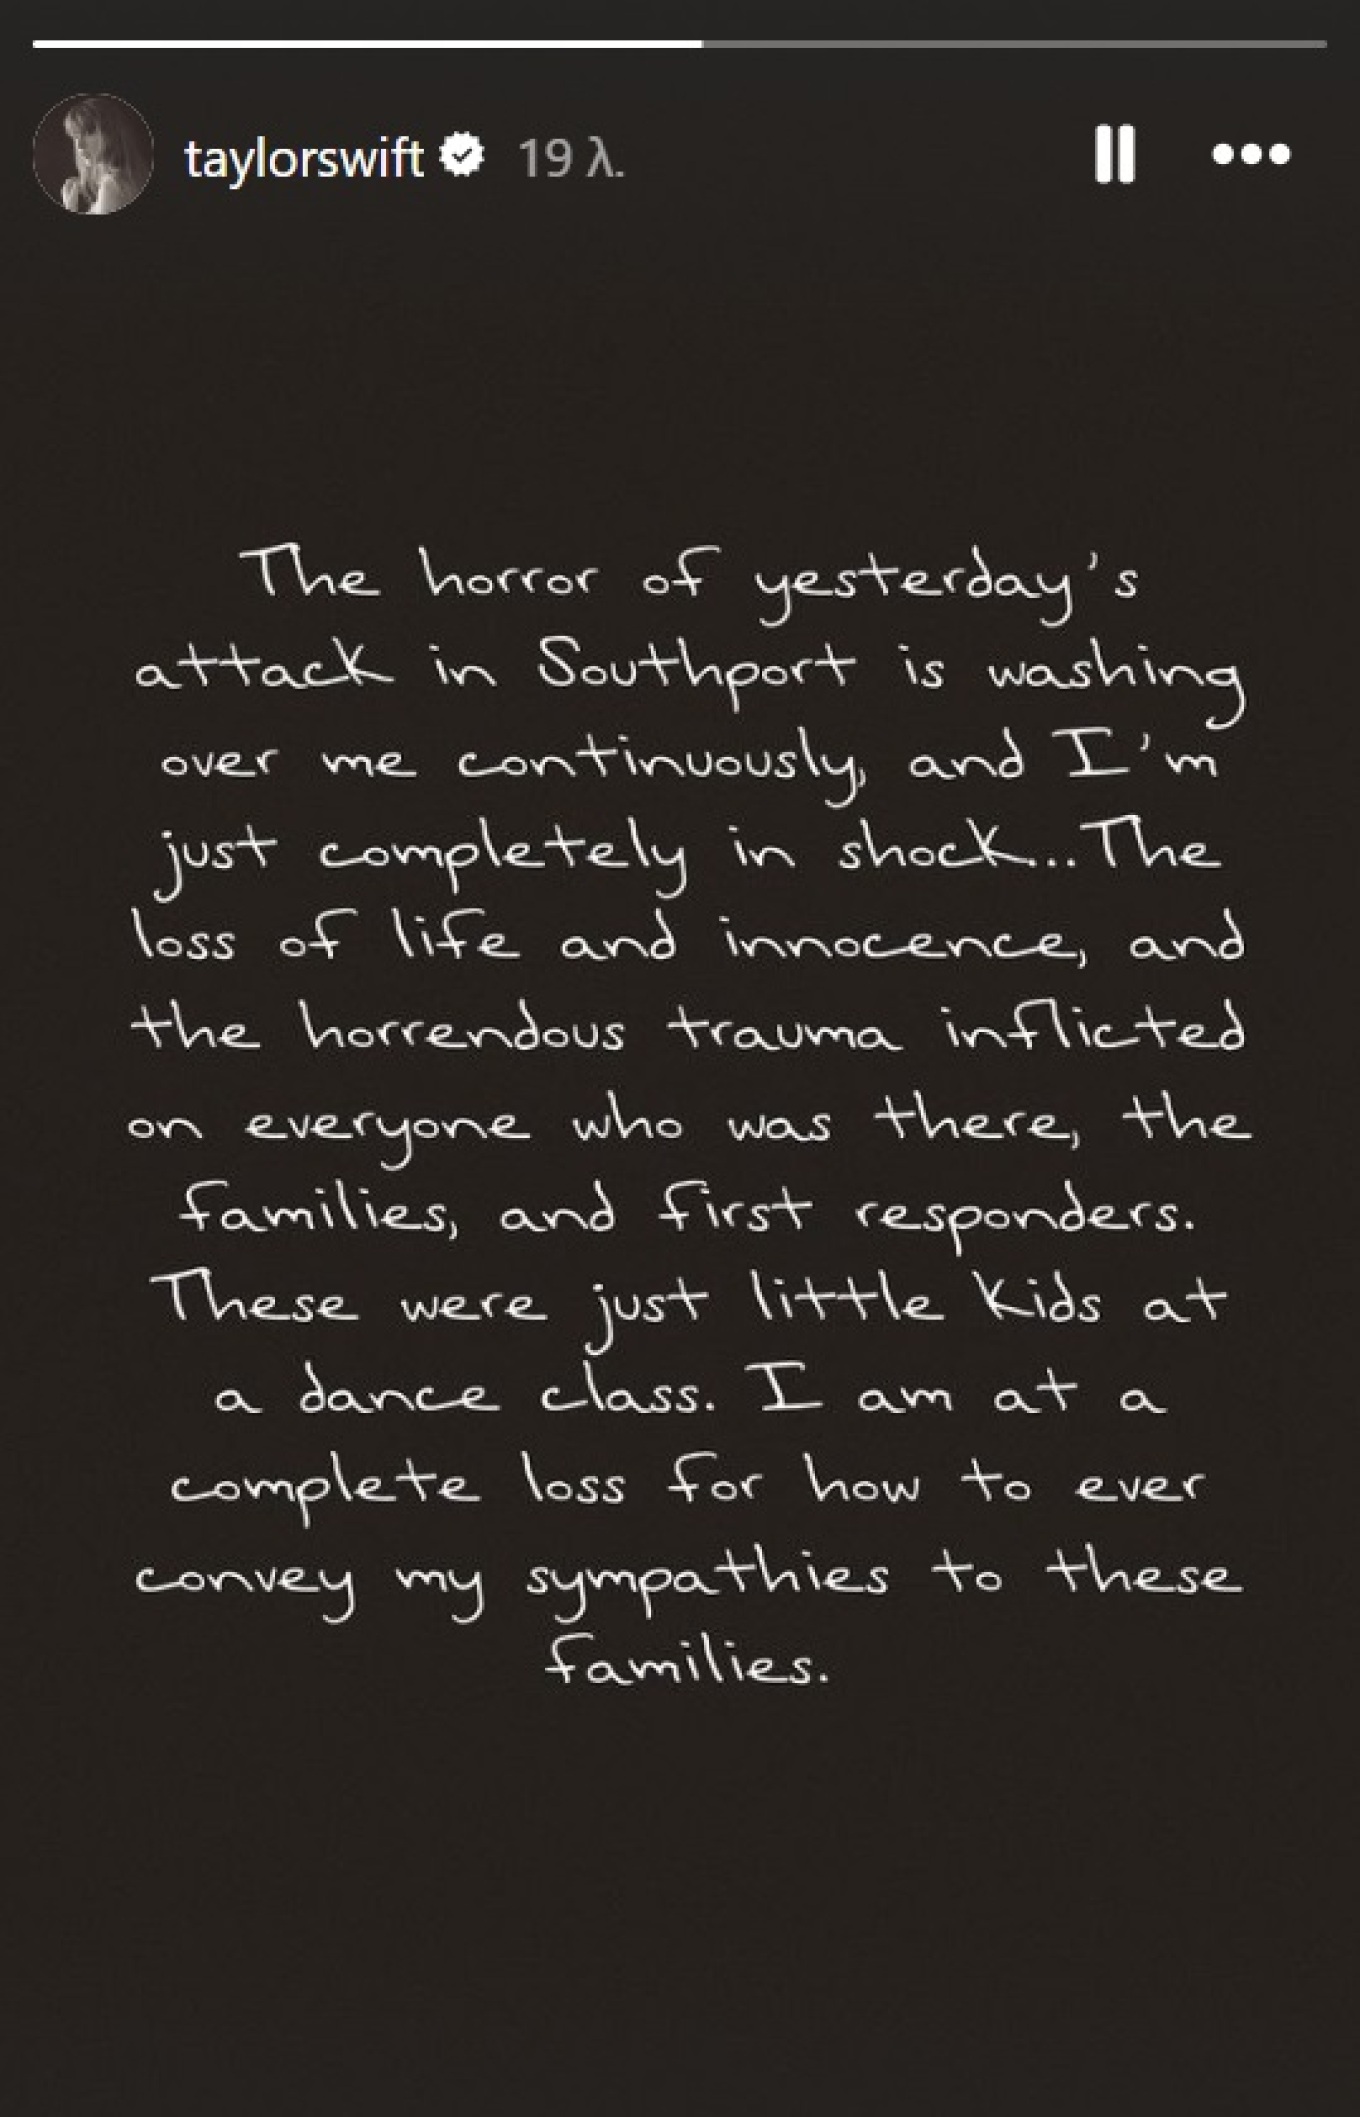 taylorswift 19 λ.
The horror of yesterday's
attack in Southport is washing
over me continuously, and I'm
just completely in shock...The
loss of life and innocence, and
the horrendous trauma inflicted
on everyone who was there, the
families, and first responders.
These were just little kids at
a dance class. I am at a
complete loss for how to ever
convey my sympathies to these
families.